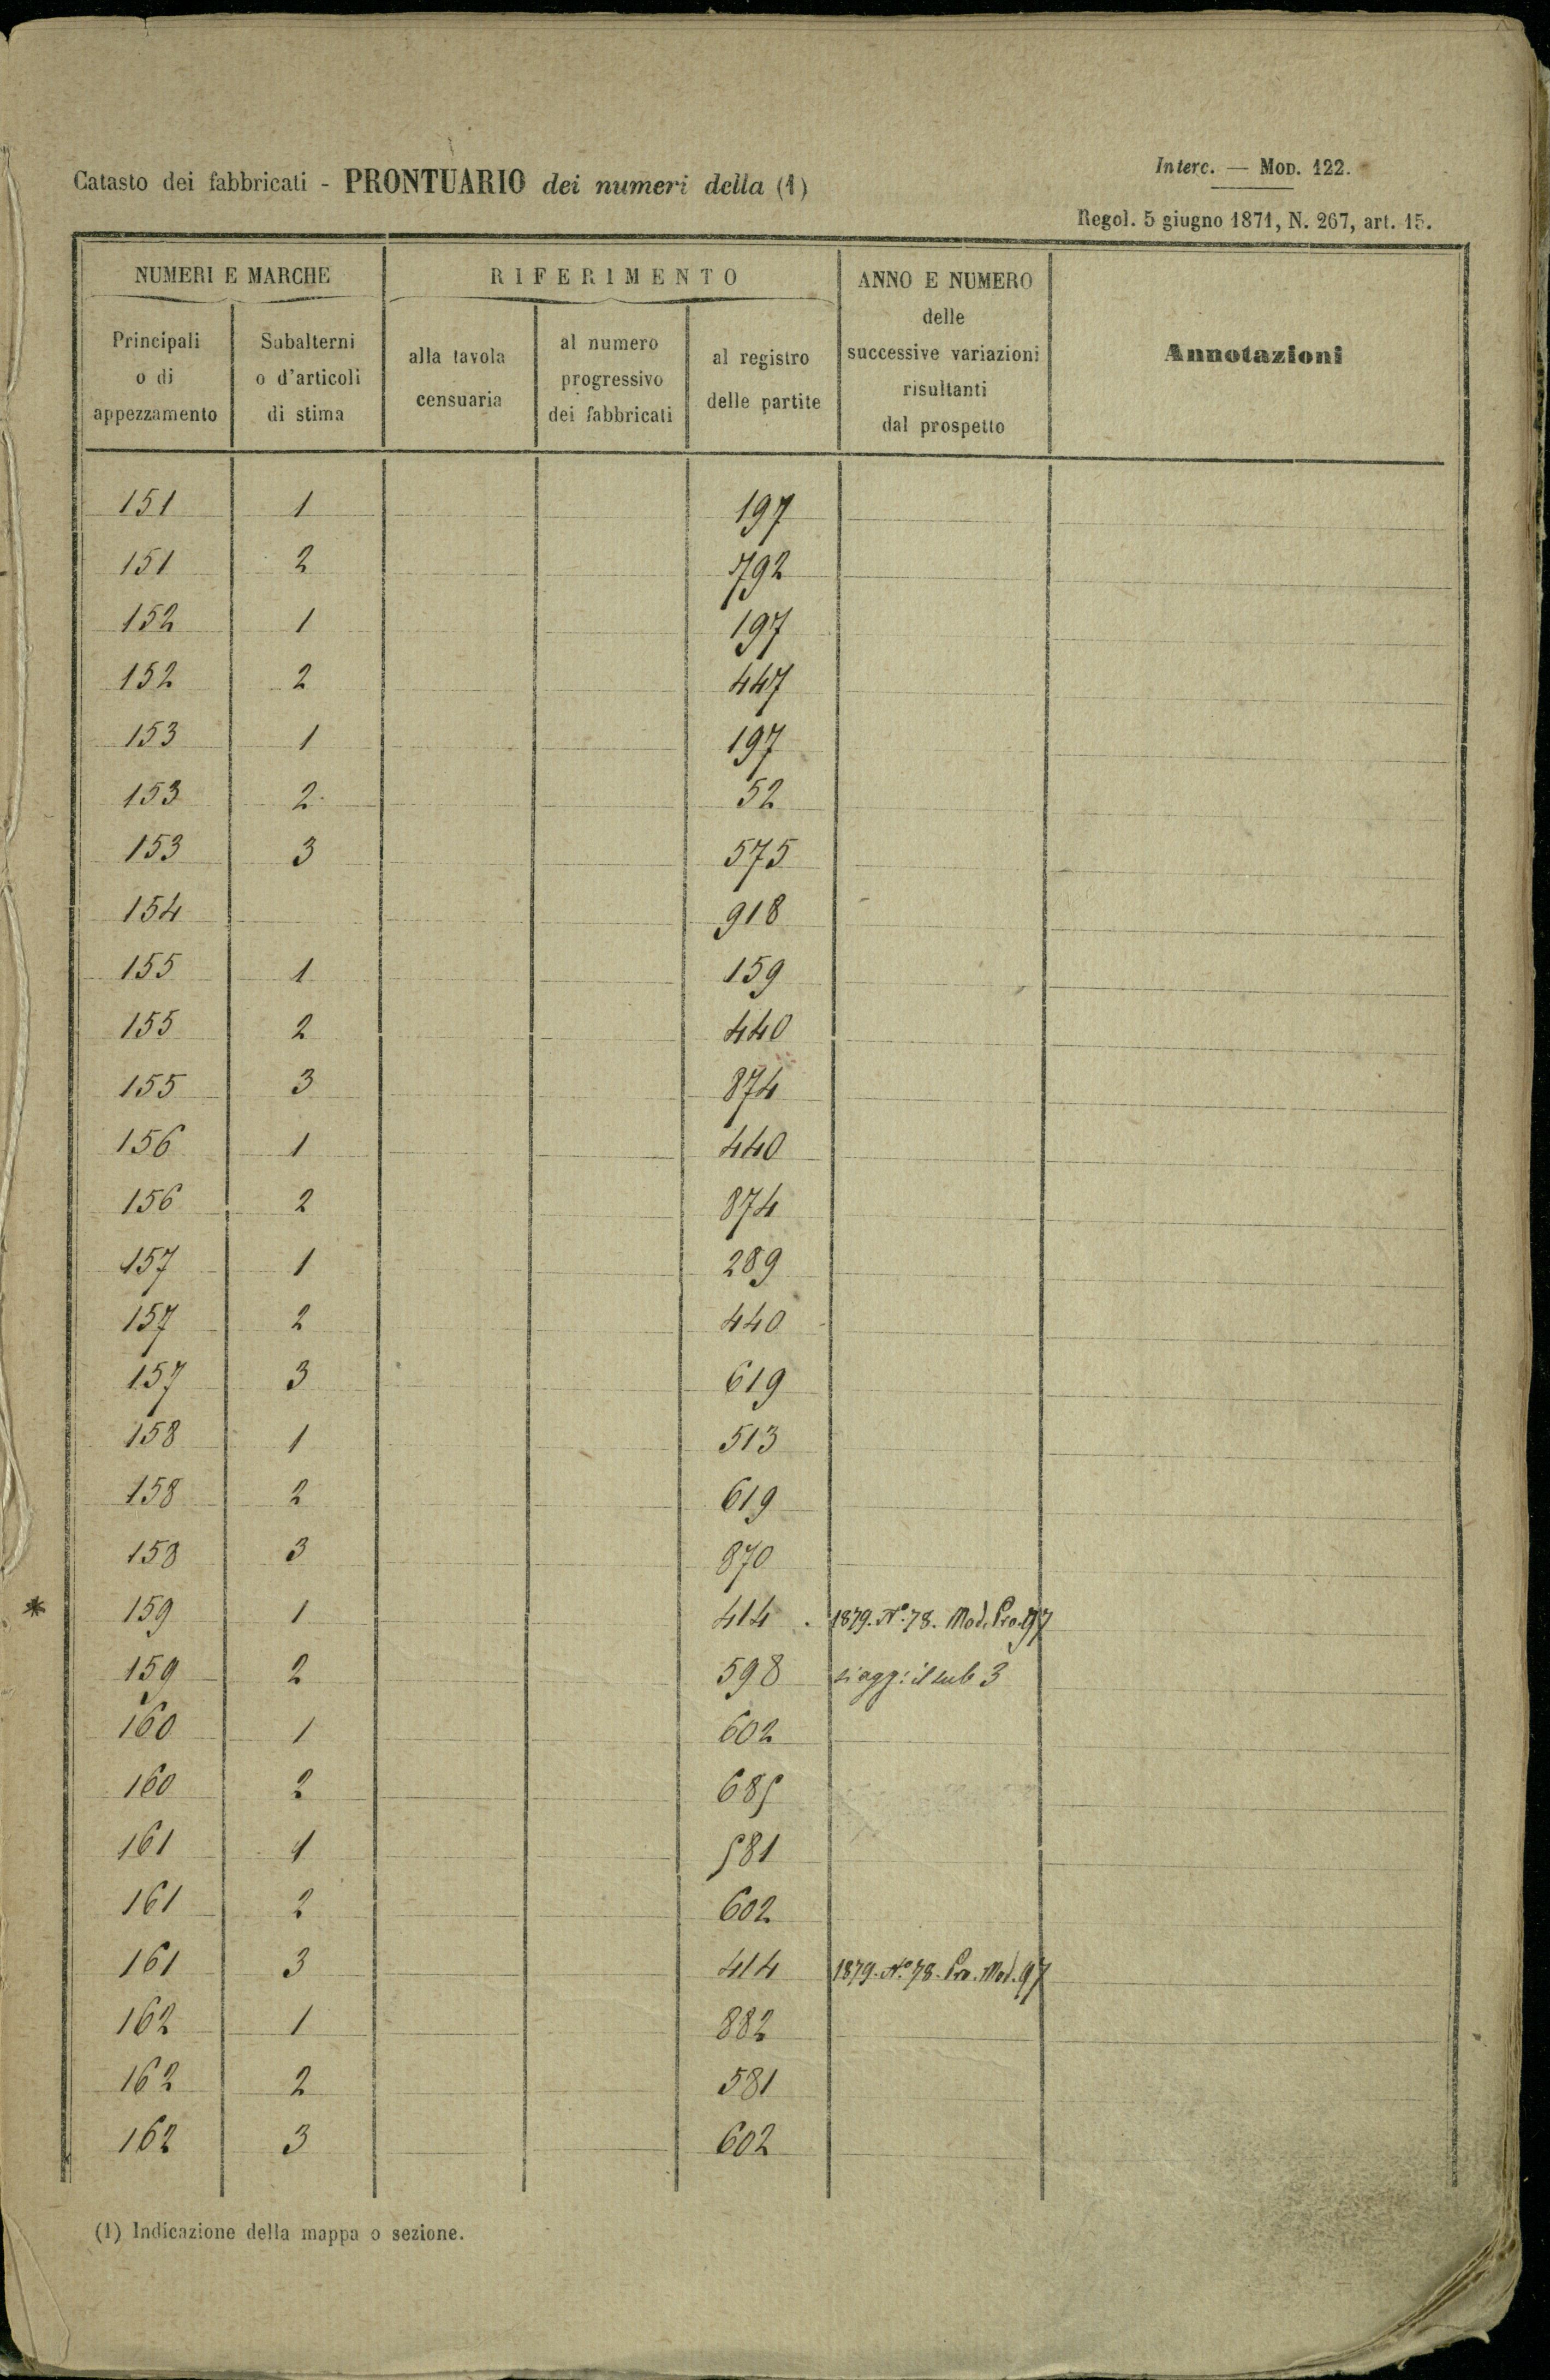 Interc. — Mod. 122.
Catasto dei fabbricati - PRONTUARIO dei numeri della (1)
Regol. 5 giugno 1871, N. 267, art. 15.
NUMERI E MARCHE
Principali
o di
appezzamento
Subalterni
o d'articoli
di stima
RIFERIMENTO
alla tavola
censuaria
al numero
progressivo
dei fabbricati
al registro
delle partite
ANNO E NUMERO
delle
successive variazioni
risultanti
dal prospetto
Annotazioni
151 1 197
151 2 792
152 1 197
152 2 447
153 1 197
153 2 52
153 3 575
154 918
155 1 159
155 2 440
155 3 874
156 1 440
156 2 874
157 1 289
157 2 440
157 3 619
158 1 513
158 2 619
158 3 870
* 159 1 414 1879. N.º 78. Mod. Pro. 97
159 2 598 si agg: il sub 3
160 1 602
160 2 685
161 1 581
161 2 602
161 3 414 1879. N.º 78. Pro. Mod. 97
162 1 882
162 2 581
162 3 602
(1) Indicazione della mappa o sezione.